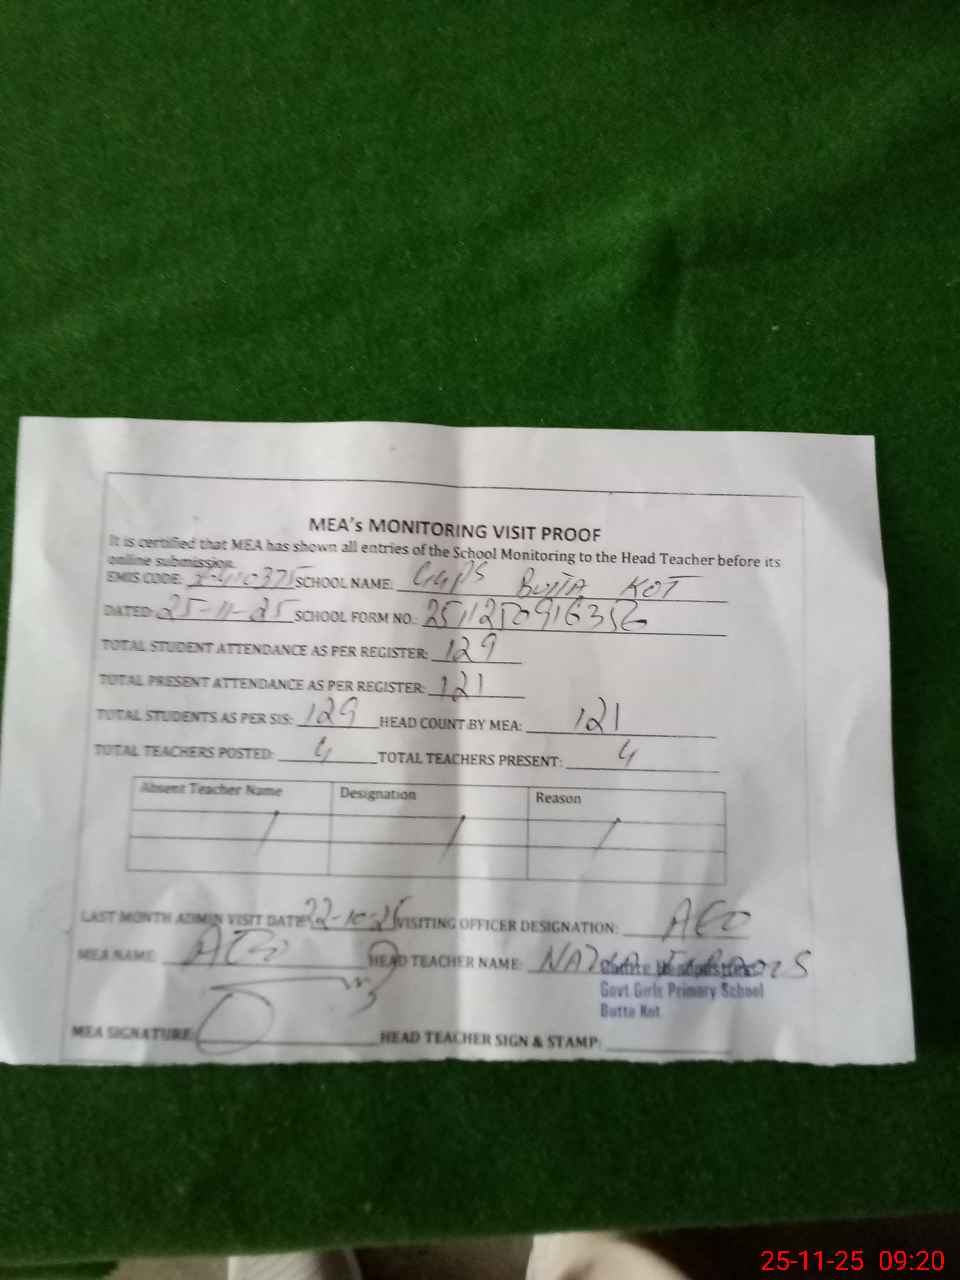 MEA's MONITORING VISIT PROOF
It is certified that MEA has shown all entries of the School Monitoring to the Head Teacher before its
online submission.
EMIS CODE: SCHOOL NAME: GGPS Butta KOT
DATED: 25-11-25 SCHOOL FORM NO.:
TOTAL STUDENT ATTENDANCE AS PER REGISTER: 129
TOTAL PRESENT ATTENDANCE AS PER REGISTER: 121
TOTAL STUDENTS AS PER SIS: 129 HEAD COUNT BY MEA: 121
TOTAL TEACHERS POSTED: 4 TOTAL TEACHERS PRESENT: 4
Absent Teacher Name Designation Reason
LAST MONTH ADMIN VISIT DATE: 22-10-25 VISITING OFFICER DESIGNATION: AEO
MEA NAME: HEAD TEACHER NAME:
Govt Girls Primary School
Butta Kot
MEA SIGNATURE: HEAD TEACHER SIGN & STAMP:
25-11-25 09:20